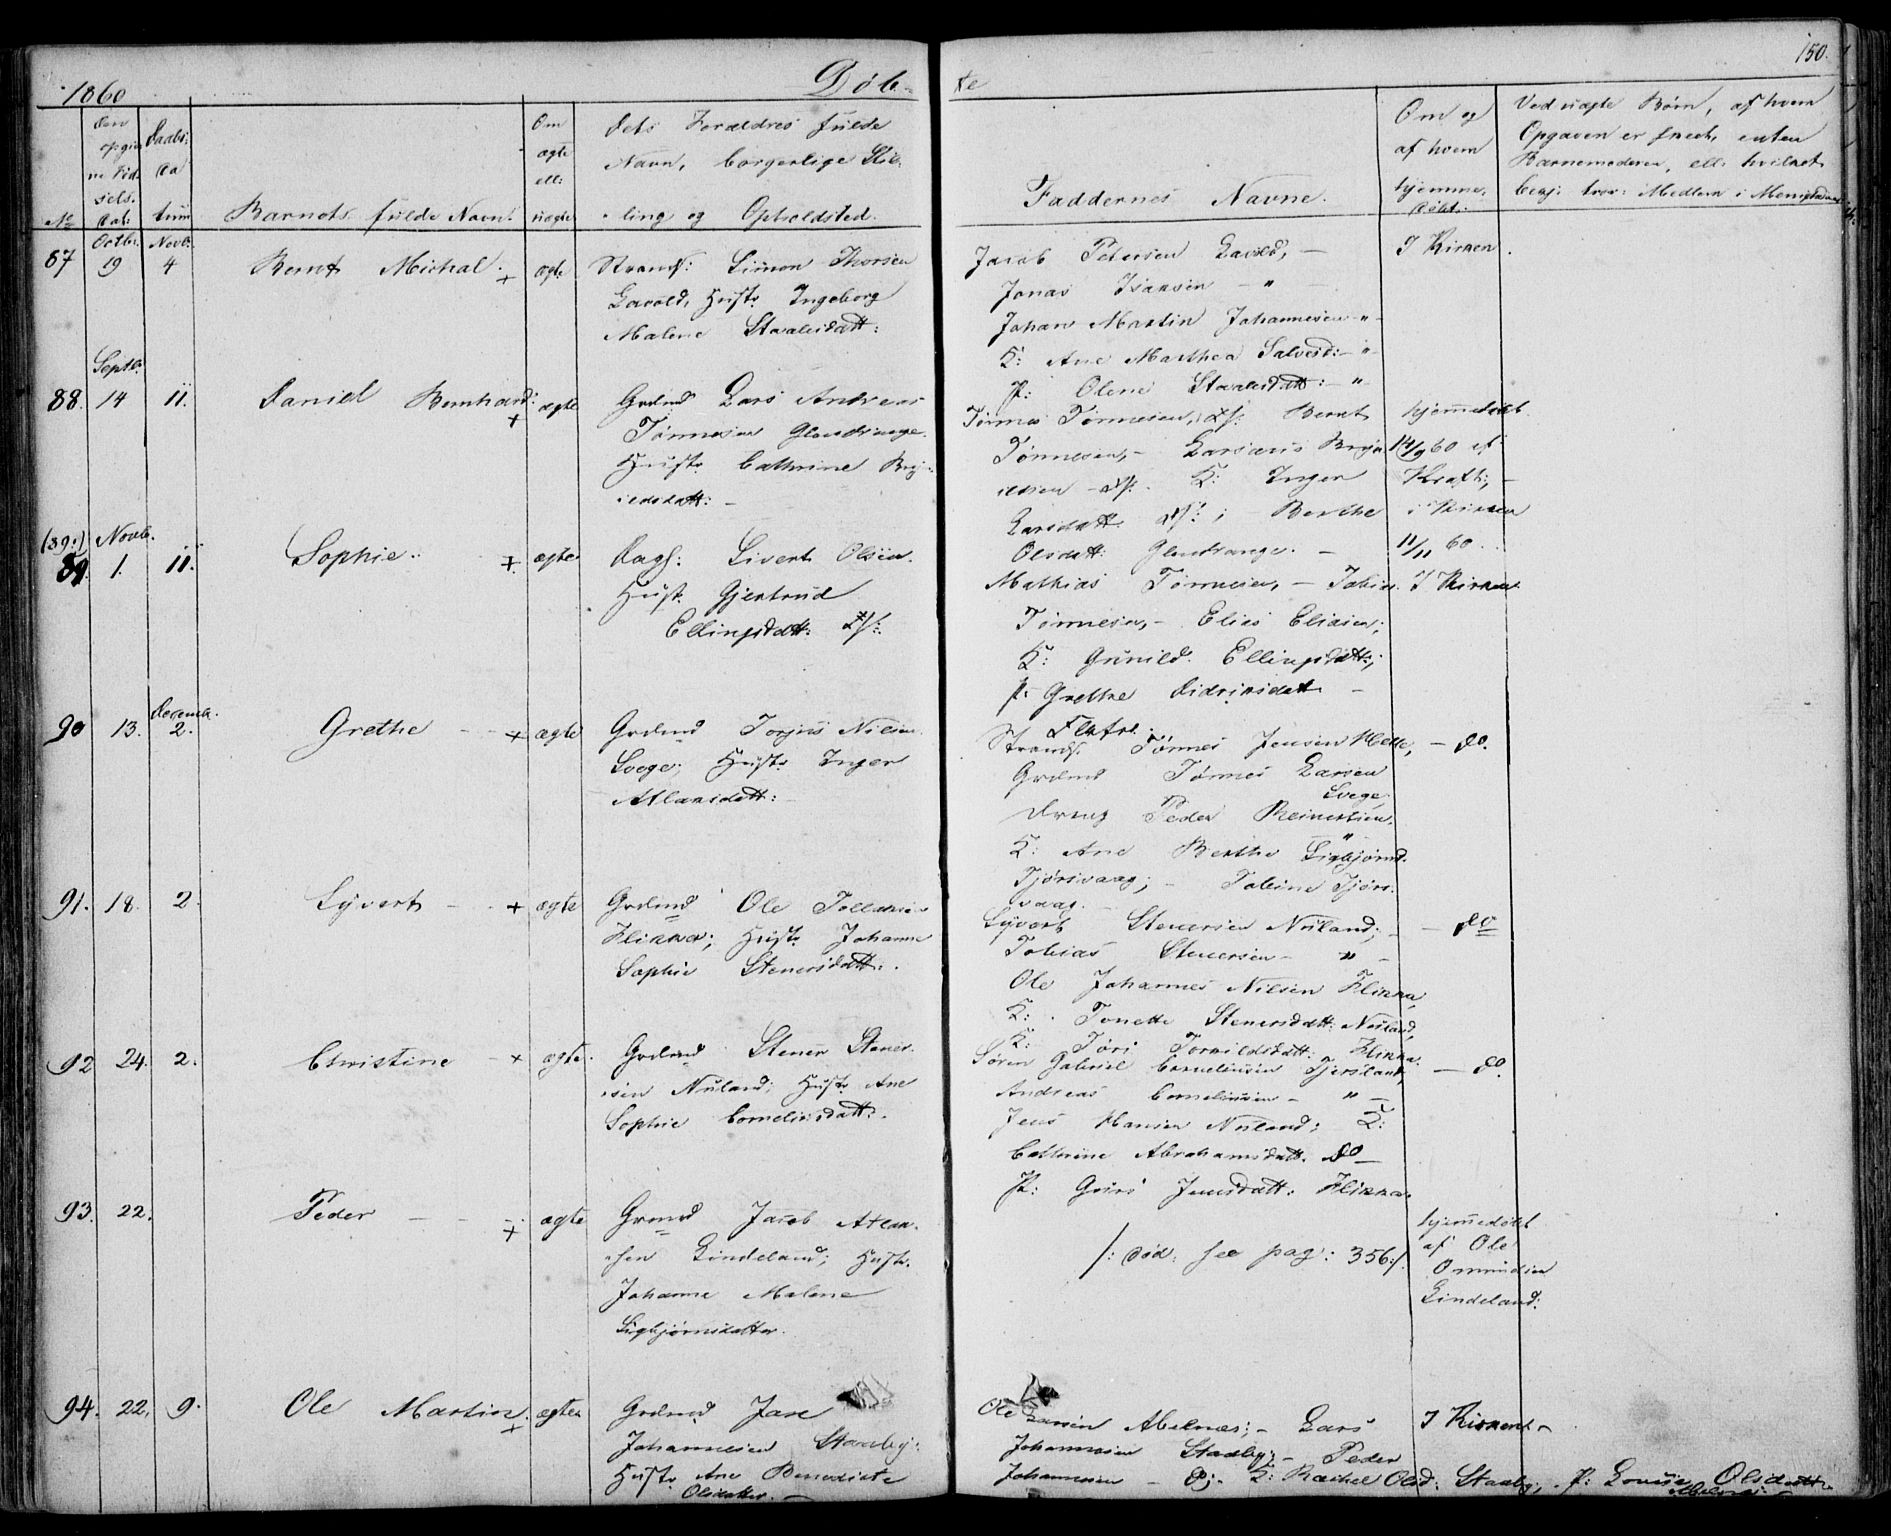 1860
Døb-
te
150.
Den opgivne Fødselsdat:
Daabsdatum
No
Barnets fulde Navn.
Om ægte ell: uægte
Dets Forældres fulde
Navn, borgerlige Stil-
ling og Opholdsted.
Faddernes Navne.
Om og
af hvem
hjemme-
døbt.
Ved uægte Børn, af hvem
Opgaven er skeet, enten
Barnemoderen, ell: hvilket
87
Octbr.
19
Novb.
4
Bernt Michal.
+
ægte
Strands: Simon Thorsen
Lavold, Hustr Ingeborg
Malene Staalesdatt:
Jacob Petersen Lavold, -
Jonas Isaksen - " -
Johan Martin Johannesen - " -
K: Ane Marthea Salvesd: - " -
P: Olene Staalesdatt: - "
I Kirken.
Septb.
88. 14 11.
Daniel Bernhard:
+
ægte
Grdmd Lars Andreas
Tønnesen Glendrange.
Hustr Cathrine Brij-
ildsdatt: -
Tønnes Tønnesen, Bernt
Tønnesen, - Larsæus Brijn
ildsen - K: Inger
Larsdatt. ; Berthe
Olsdatt: Glendrange. -
hjemmedøbt
14/9 60 af
Kraft; -
i Kirken
11/11 60.
(39:) Novb.
89. 1. 11.
Sophie.
+
ægte
Dags: Sivert Olsen.
Hust. Gjertrud
Ellingsdatt:
Mathias Tønnesen, - Tobias
Tønnesen, - Elias Eliasen;
K: Gunild Ellingsdatt:;
P: Grethe Didriksdatt -
I Kirken
90 13.
Decemb.
2.
Grethe
+
ægte
Grdmd Torjus Nilsen
Svege; Hustr Inger
Atlaksdatt:
Strands. Tønnes Jensen Helle,
Grdmd Tønnes Larsen
Svege,
Dreng Peder Reinertsen.
"
K: Ane Berthe Sigbjørnd.
Tjørsvaag; - Tobine Tjørs-
vaag.
- do.
91. 18. 2.
Syvert
+
ægte
Grdmd Ole Tollaksen
Flikka; Hustr Johanne
Sophie Stenersdatt:.
Syvert Stenersen Nuland; -
Tobias Stenersen - " -
Ole Johannes Nilsen Flikka,
K: Tonette Stenersdatt: Nuland,
K: Tori Torkildsdatt: Flikka.
- do
92 24. 2.
Christine
+
ægte.
Grdmd Stener Stener-
sen Nuland; Hustr Ane
Sophie Corneliusdatt:.
Søren Gabriel Corneliusen Tjersland,
Andreas Corneliusen - " -
Jens Hansen Nuland; K:
Cathrine Abrahamsdatt. do -
P: Guro Jensdatt: Flikka.
- do.
93. 22.
Peder
+
ægte
Grdmd Jacob Atlak-
sen Lindeland; Hustr.
Johanne Malene
Sigbjørnsdatter.
/: død: see pag: 356:/.
hjemmedøbt
af Ole
Omundsen
Lindeland.
94. 22. 9.
Ole Martin.
+
ægte
Grdmd Jave
Johannesen Stadby;
Hustr Ane Benedicte
Olsdatter. -
Ole Larsen Abelnes; - Lars
Johannesen Stadby; - Peder
Johannesen - K: Rachel Olsd: Stadby, . P: Lovise Olsdatt.
Abelnes
I Kirken -